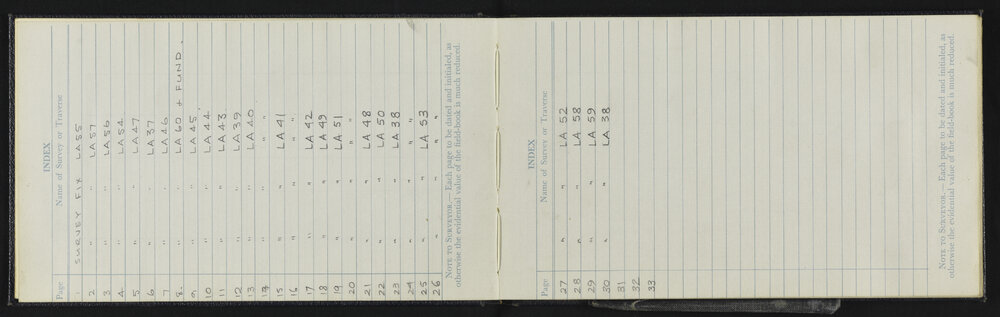 INDEX
Page Name of Survey or Traverse
1 SURVEY FIX LA55
2 " " LA57
3 " " LA56
4 " " LA54
5 " " LA47
6 " " LA37
7 " " LA46
8 " " LA60 + FUND.
9 " " LA45
10 " " LA44
11 " " LA43
12 " " LA39
13 " " LA40
14 " "
15 " " LA41
16 " " "
17 " " LA42
18 " " LA49
19 " " LA51
20 " " "
21 " " LA48
22 " " LA50
23 " " LA38
24 " " "
25 " " LA53
26 " " "
NOTE TO SURVEYOR.—Each page to be dated and initialed, as
otherwise the evidential value of the field-book is much reduced.
INDEX
Page Name of Survey or Traverse
27 " " LA52
28 " " LA58
29 " " LA59
30 " " LA38
31
32
33
NOTE TO SURVEYOR.—Each page to be dated and initialed, as
otherwise the evidential value of the field-book is much reduced.